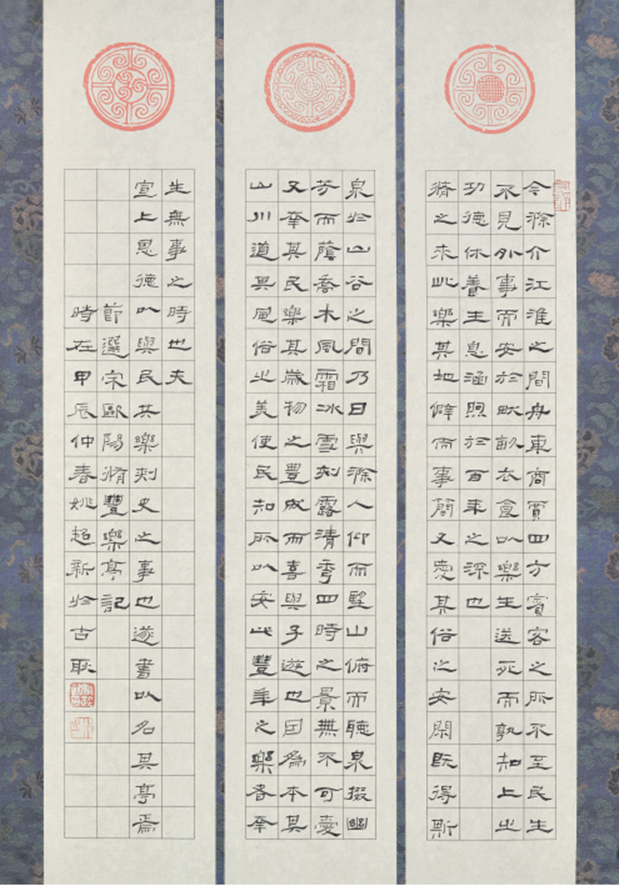 今滁介江淮之間舟車商賈四方賓客之所不至民生
不見外事而安於畎畝衣食以樂生送死而孰知上之
功德休養生息涵煦於百年之深也
脩之來此樂其地僻而事簡又愛其俗之安閑既得斯
泉於山谷之間乃日與滁人仰而望山俯而聽泉掇幽
芳而蔭喬木風霜冰雪刻露清秀四時之景無不可愛
又幸其民樂其歲物之豐成而喜與予遊也因為本其
山川道其風俗之美使民知所以安此豐年之樂者幸
生無事之時也夫
宣上恩德以與民共樂刺史之事也遂書以名其亭焉
節選宋歐陽脩豐樂亭記
時在甲辰仲春姚超新於古耿